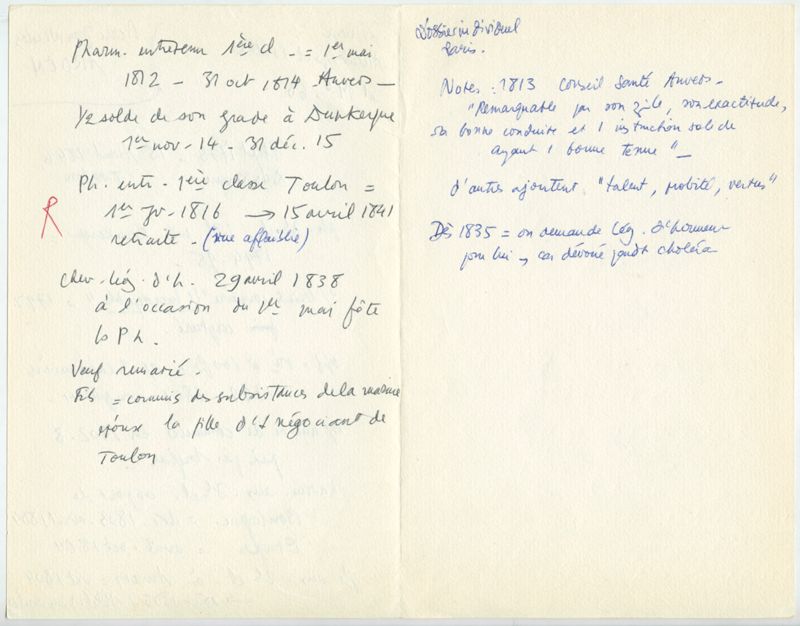 Pharm. entretenu 1ère cl - = 1er mai
1812 - 31 oct 1814 Anvers -
1/2 solde de son grade à Dunkerque
1er nov - 14 - 31 déc. 15
Ph. entr. 1ère classe Toulon =
1er jv - 1816 → 15 avril 1841
retraite. (vue affaiblie)
R
Chev. Lég. d'h. 29 avril 1838
à l'occasion du 1er mai fête
Ls Ph.
Veuf remarié.
Fils = commis des subsistances de la marine
épouse la fille d'1 négociant de
Toulon
Dossier individuel
Paris.
Notes : 1813 Conseil Santé Anvers -
"Remarquable par son zèle, son exactitude,
sa bonne conduite et 1 instruction solide
ayant 1 bonne tenue" -
d'autres ajoutent "talent, probité, vertus"
Dès 1835 = on demande Lég. d'honneur
pour lui → car dévoué pendt choléra